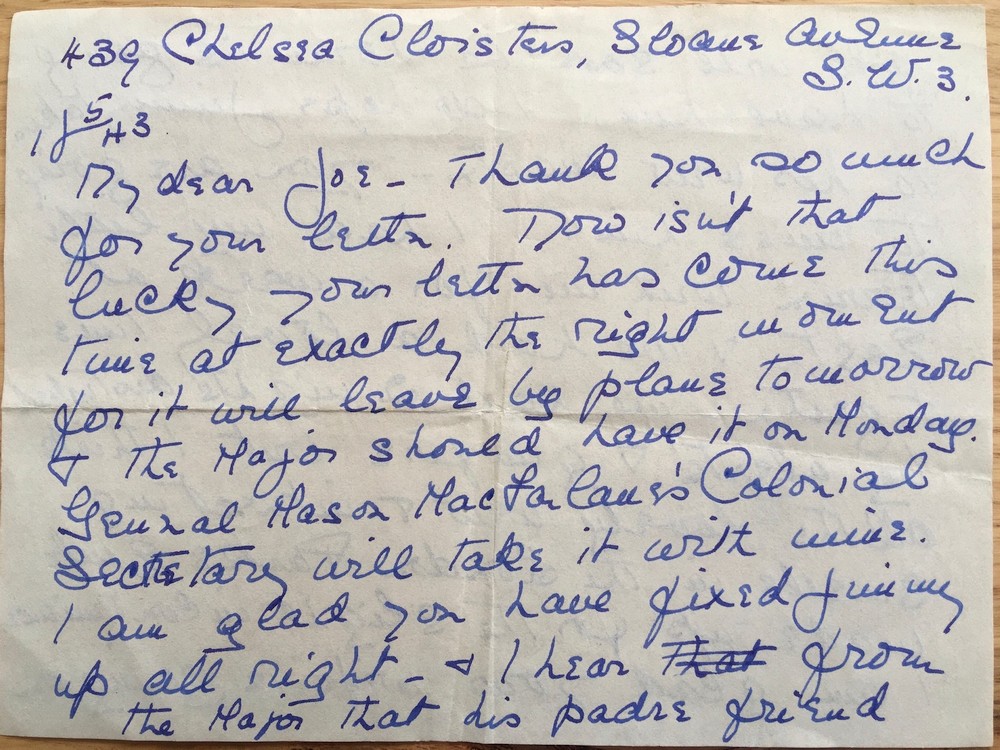 439 Chelsea Cloisters, Sloane Avenue
S.W.3.
1/5/43
My dear Joe - Thank you so much
for your letter. Now isn't that
lucky your letter has come this
time at exactly the right moment
for it will leave by plane tomorrow
& the Major should have it on Monday.
General Mason MacFarlane's Colonial
Secretary will take it with mine.
I am glad you have fixed Jimmy
up all right - & I hear that from
the Major that his padre friend